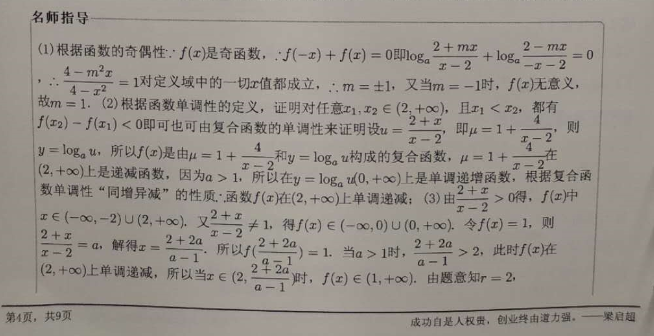 名师指导
(1)根据函数的奇偶性∵f(x)是奇函数，∴f(−x)+f(x)=0即logₐ (2+mx)/(x−2) + logₐ (2−mx)/(−x−2) =0
，∴ (4−m²x)/(4−x²) =1对定义域中的一切x值都成立，∴m=±1，又当m=−1时，f(x)无意义，
故m=1．(2)根据函数单调性的定义，证明对任意x₁,x₂∈(2,+∞)，且x₁<x₂，都有
f(x₂)−f(x₁)<0即可也可由复合函数的单调性来证明设u= (2+x)/(x−2)，即μ=1+ 4/(x−2)，则
y=logₐ u，所以f(x)是由μ=1+ 4/(x−2) 和y=logₐ u构成的复合函数，μ=1+ 4/(x−2) 在
(2,+∞)上是递减函数，因为a>1，所以在y=logₐ u(0,+∞)上是单调递增函数，根据复合函
数单调性“同增异减”的性质∴函数f(x)在(2,+∞)上单调递减；(3)由 (2+x)/(x−2) >0得，f(x)中
x∈(−∞,−2)∪(2,+∞)．又 (2+x)/(x−2) ≠1，得f(x)∈(−∞,0)∪(0,+∞)．令f(x)=1，则
(2+x)/(x−2) =a，解得x= (2+2a)/(a−1)．所以f( (2+2a)/(a−1) )=1．当a>1时， (2+2a)/(a−1) >2，此时f(x)在
(2,+∞)上单调递减，所以当x∈(2, (2+2a)/(a−1) )时，f(x)∈(1,+∞)．由题意知r=2，
第4页，共9页
成功自是人权贵，创业终由道力强。——梁启超